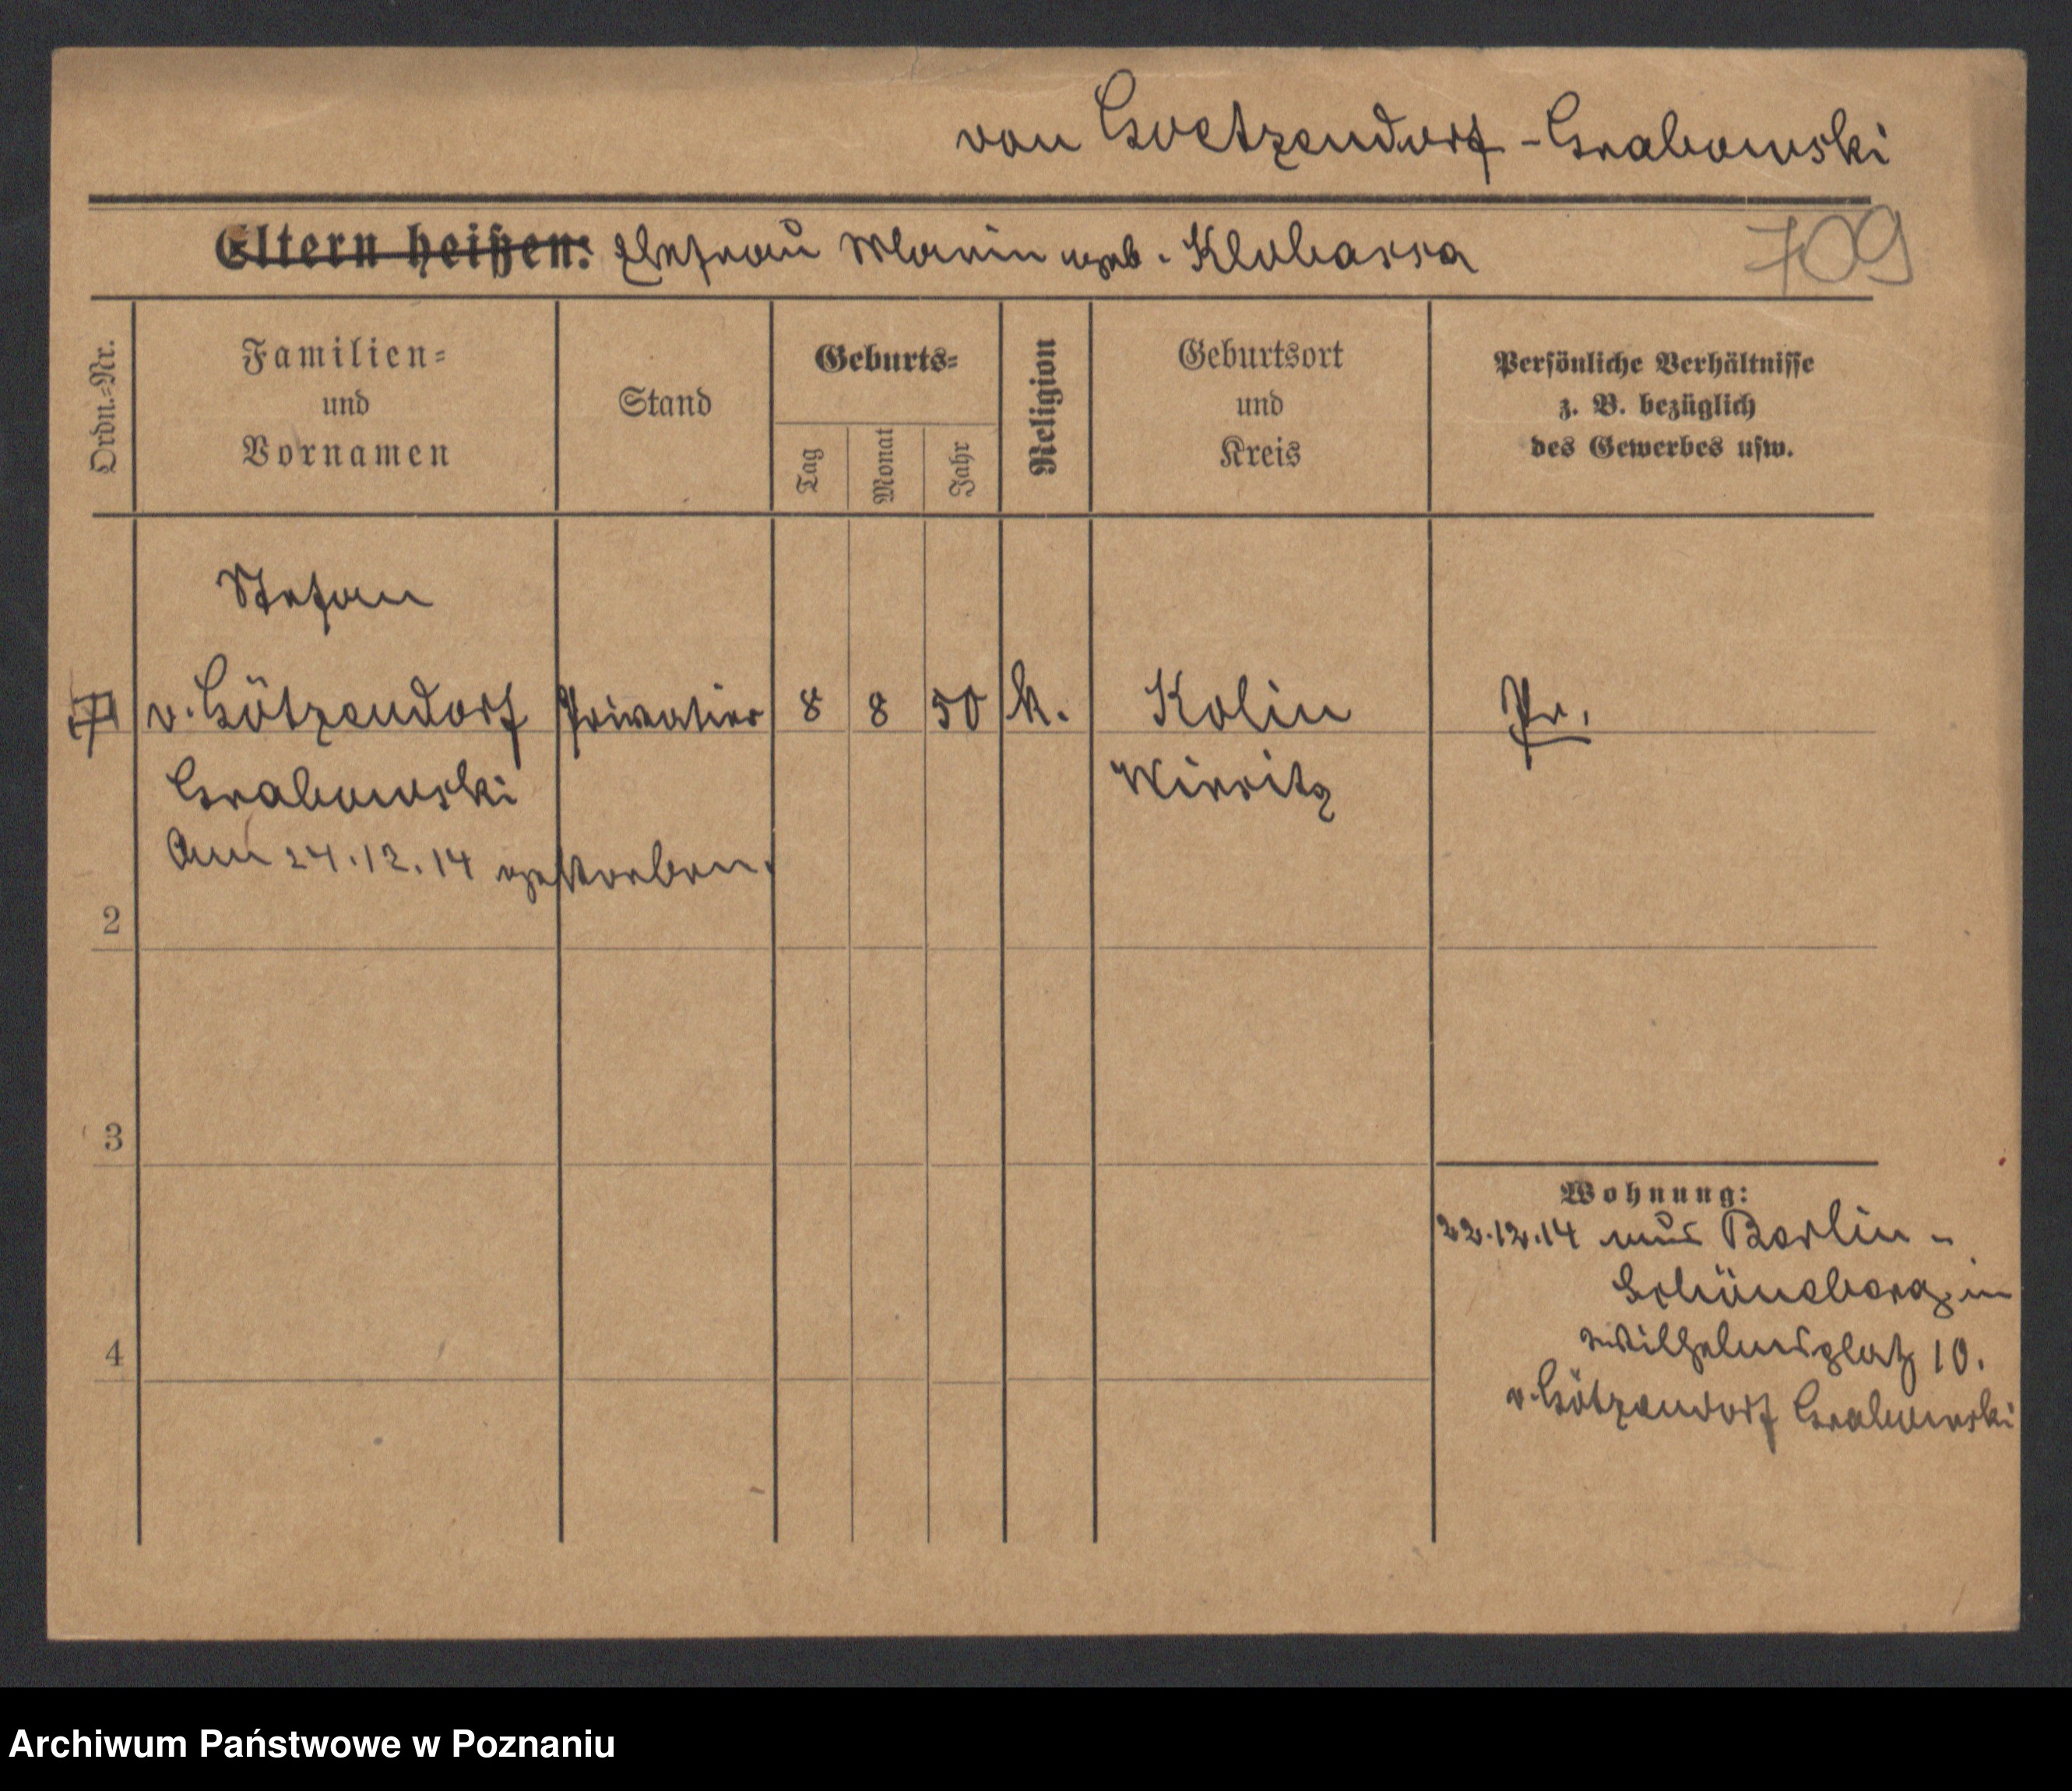 von Goetzendorf-Grabowski
Eltern heißen: Ehefrau Marie geb. Klobassa
709
Ordn.=Nr.
Familien=
und
Vornamen
Stand
Geburts=
Tag
Monat
Jahr
Religion
Geburtsort
und
Kreis
Persönliche Verhältnisse
z. B. bezüglich
des Gewerbes usw.
Stefan
v. Götzendorf Privatier 8 8 50 k. Kolin Pr.
Grabowski Wirsitz
Am 24.12.14 gestorben.
2
3
4
Wohnung:
22.12.14 aus Berlin-
Schöneberg in
Wilhelmsplatz 10.
v. Götzendorf Grabowski
Archiwum Państwowe w Poznaniu